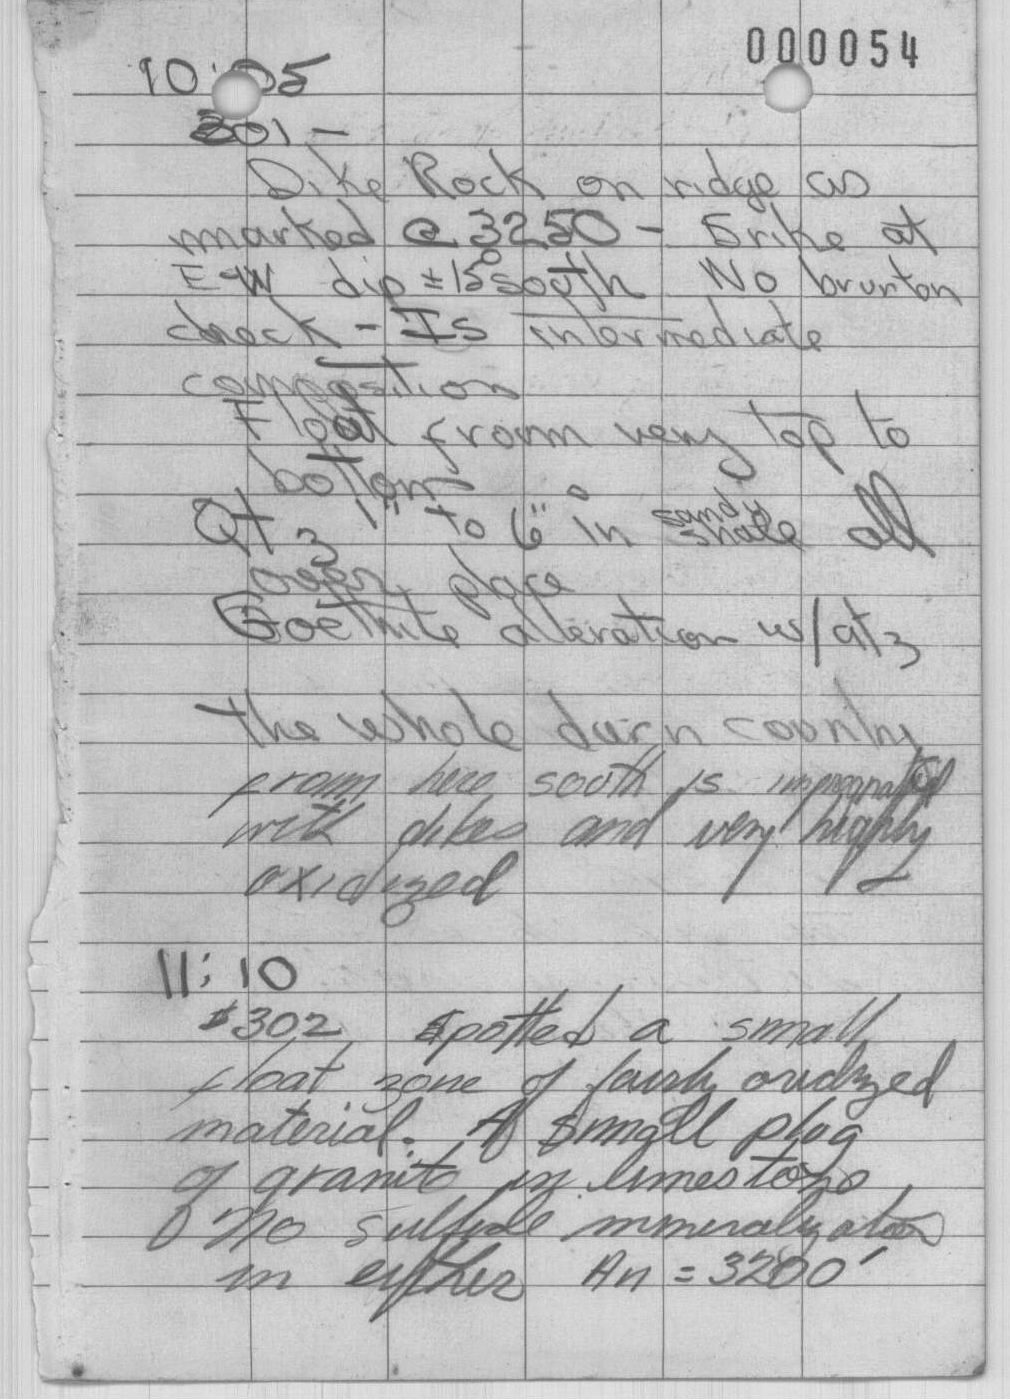 000054
10:05
301 -
Dike Rock on ridge as
marked @ 3250 - Srike at
E-W dip ± 15° south No brunton
check - Is intermediate
composition
Float froam very top to
bottom
Qtz 1" to 6" in sandy shale all
over place
Goethite alteration w/qtz
the whole darn country
froam here south is impregnated
with dikes and very highly
oxidized
11:10
302 Spotted a small
float zone of fairly oxidized
material. A small plug
of granite in limestone
No sulfide mineralization
in either An = 3200'